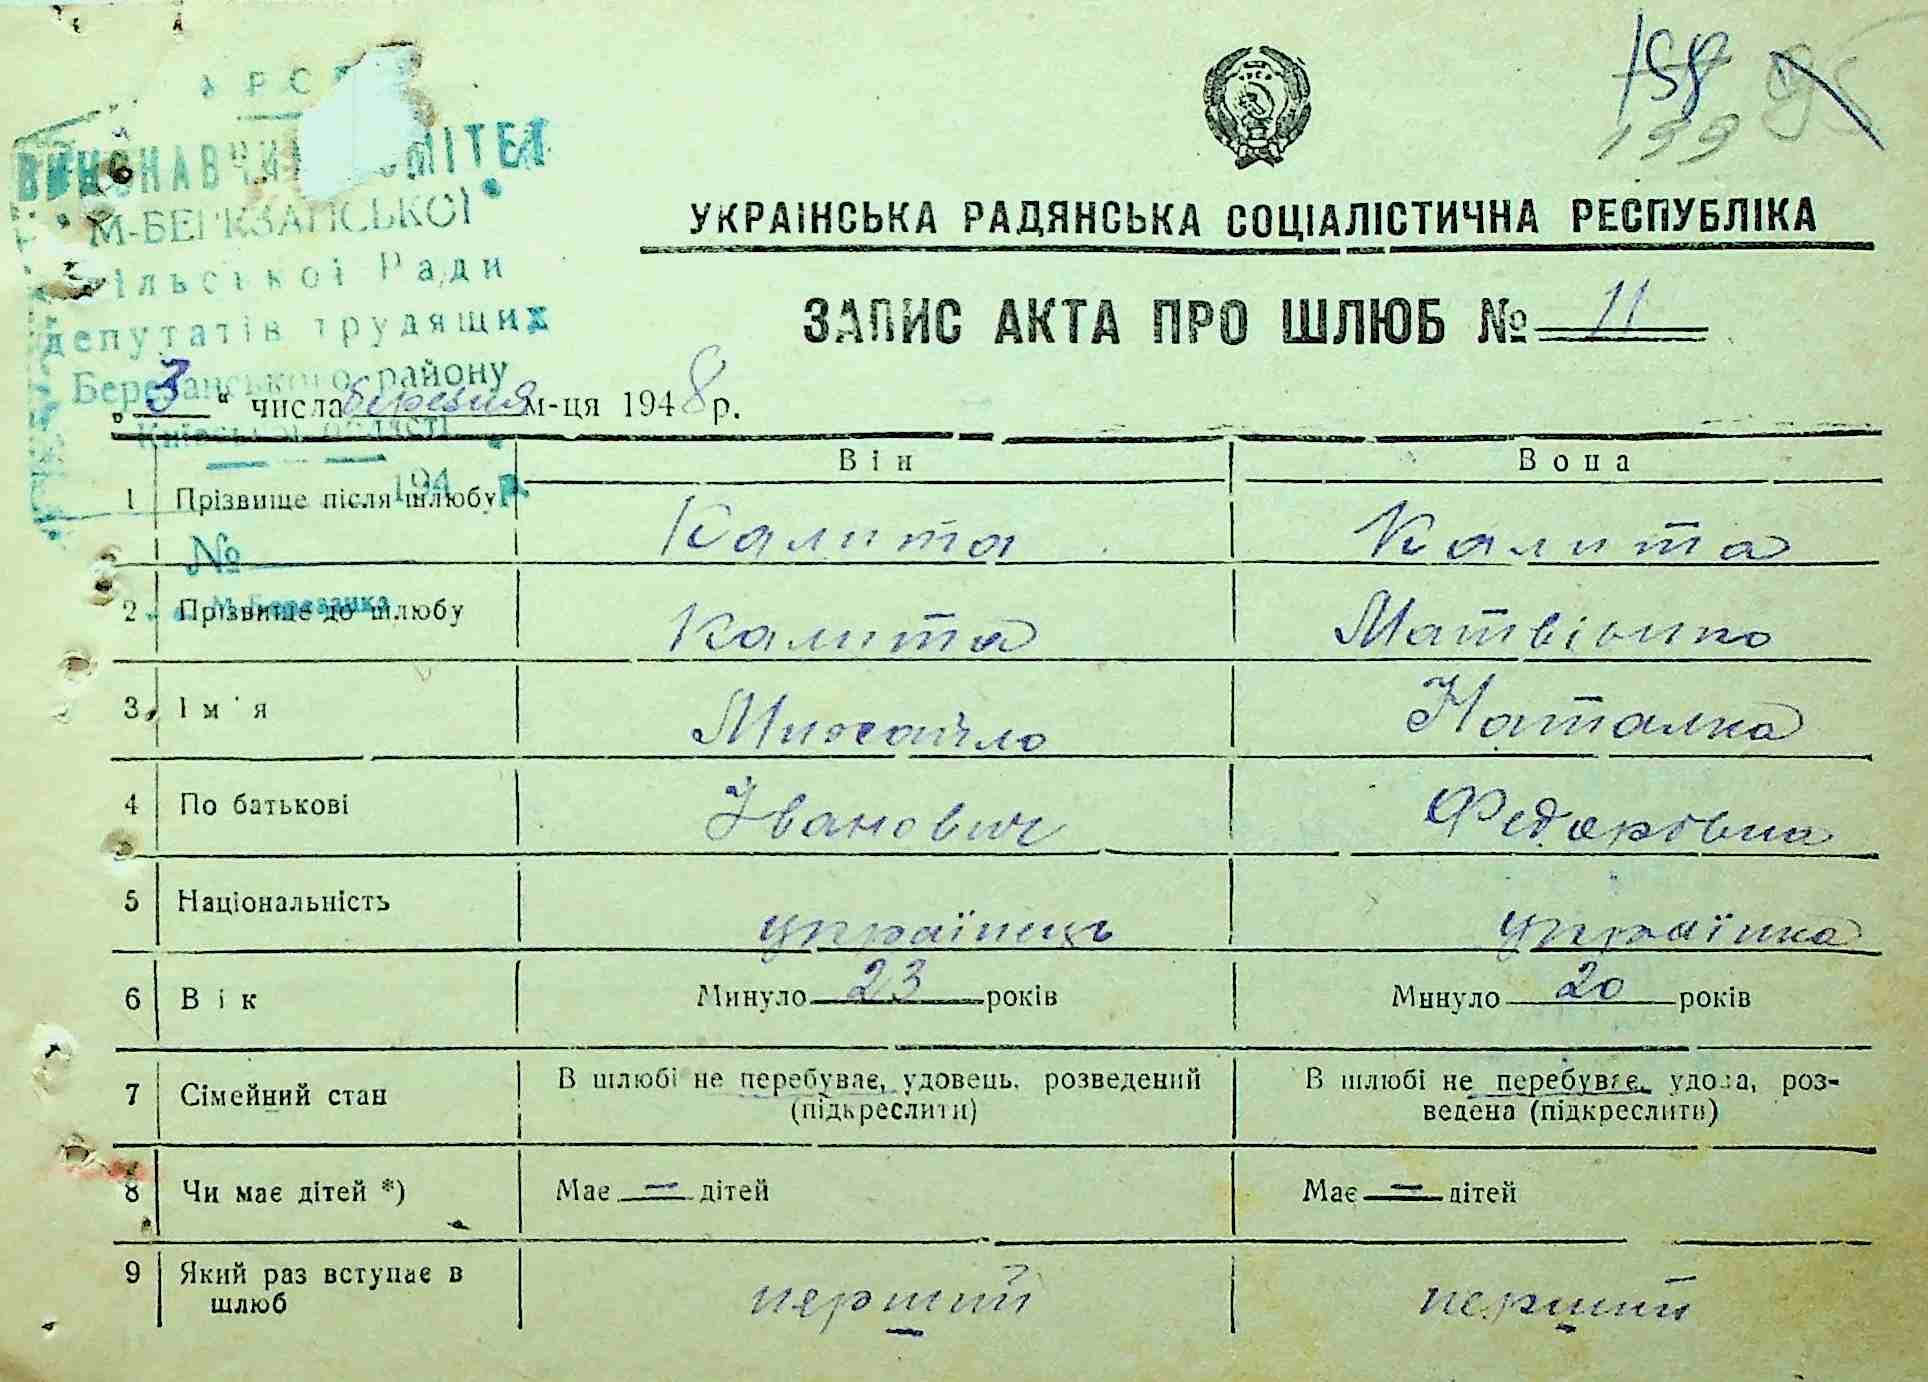 УРСР
ВИКОНАВЧИЙ КОМІТЕТ
М-БЕРЕЗАНСЬКОЇ
Сільської Ради
депутатів трудящих
Березанського району
Київської області
194 р.
№
М-Березанка
158
199
95
УКРАЇНСЬКА РАДЯНСЬКА СОЦІАЛІСТИЧНА РЕСПУБЛІКА
ЗАПИС АКТА ПРО ШЛЮБ № 11
„3“ числа березня м-ця 1948 р.
Він Вона
1 Прізвище після шлюбу Калита Калита
2 Прізвище до шлюбу Калита Матвієнко
3 Ім'я Михайло Наталка
4 По батькові Іванович Федоровна
5 Національність українець українка
6 Вік Минуло 23 років Минуло 20 років
7 Сімейний стан В шлюбі не перебуває, удовець, розведений (підкреслити) В шлюбі не перебуває, удова, роз-
ведена (підкреслити)
8 Чи має дітей *) Має — дітей Має — дітей
9 Який раз вступає в
шлюб перший перший